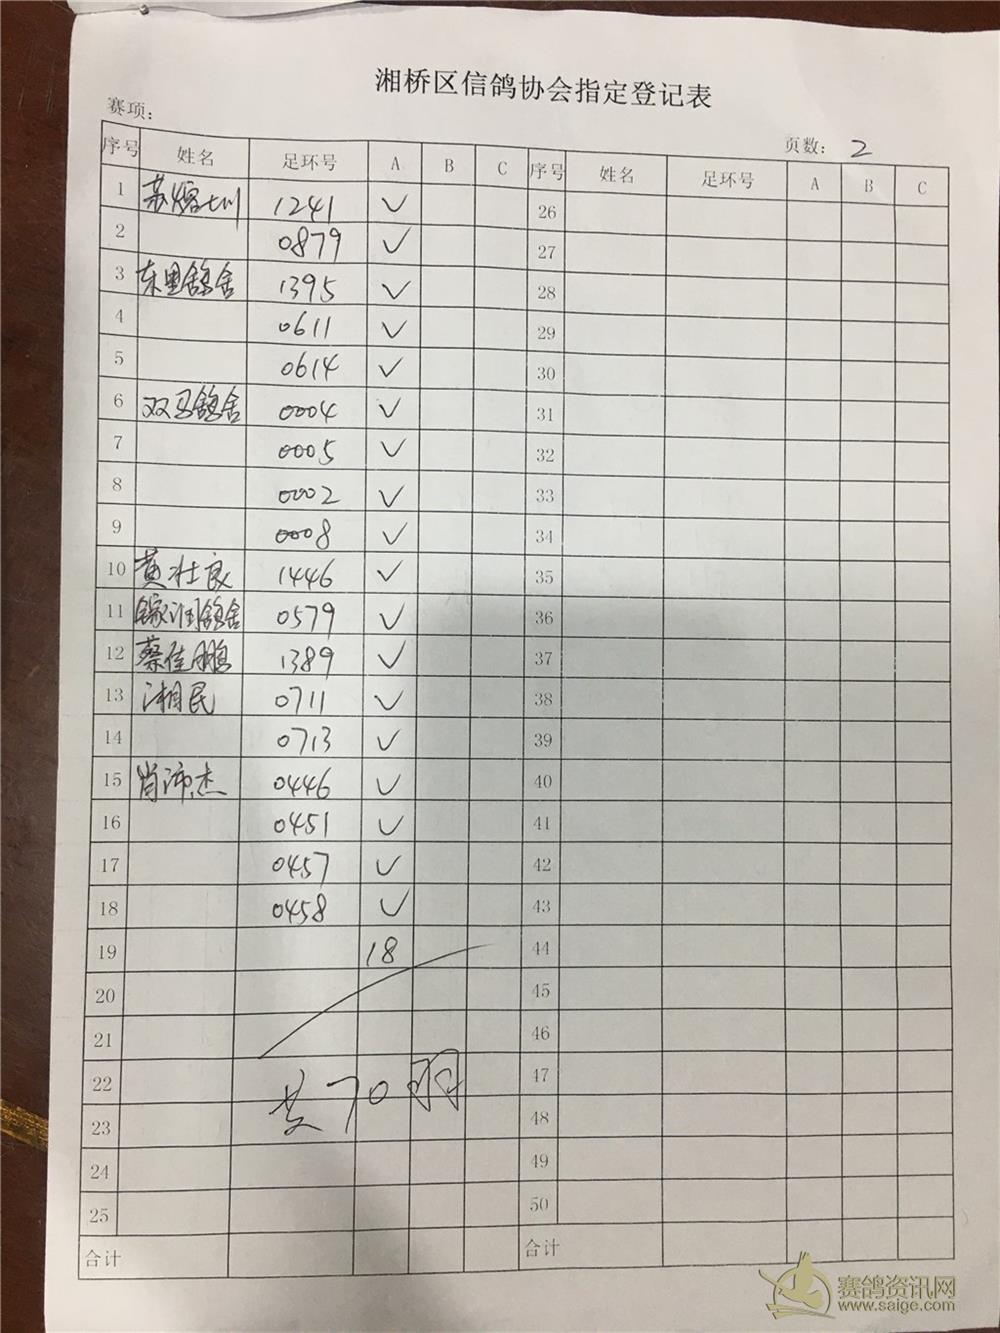 湘桥区信鸽协会指定登记表
赛项：
页数： 2
序号 姓名 足环号 A B C 序号 姓名 足环号 A B C
1 1241 ✓ 26
2 0879 ✓ 27
3 东里鸽舍 1395 ✓ 28
4 0611 ✓ 29
5 0614 ✓ 30
6 双马鸽舍 0004 ✓ 31
7 0005 ✓ 32
8 0002 ✓ 33
9 0008 ✓ 34
10 黄壮良 1446 ✓ 35
11 鸽舍 0579 ✓ 36
12 蔡佳鹏 1389 ✓ 37
13 湘民 0711 ✓ 38
14 0713 ✓ 39
15 肖沛杰 0446 ✓ 40
16 0451 ✓ 41
17 0457 ✓ 42
18 0458 ✓ 43
19 18 44
20 45
21 46
22 47
共70羽
23 48
24 49
25 50
合计 合计
赛鸽资讯网
www.saige.com